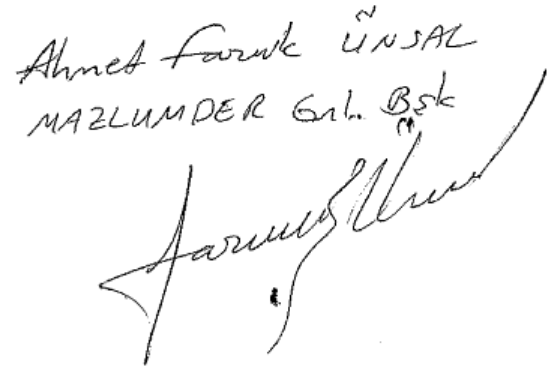 Ahmet Faruk ÜNSAL
MAZLUMDER Gnl. Bşk